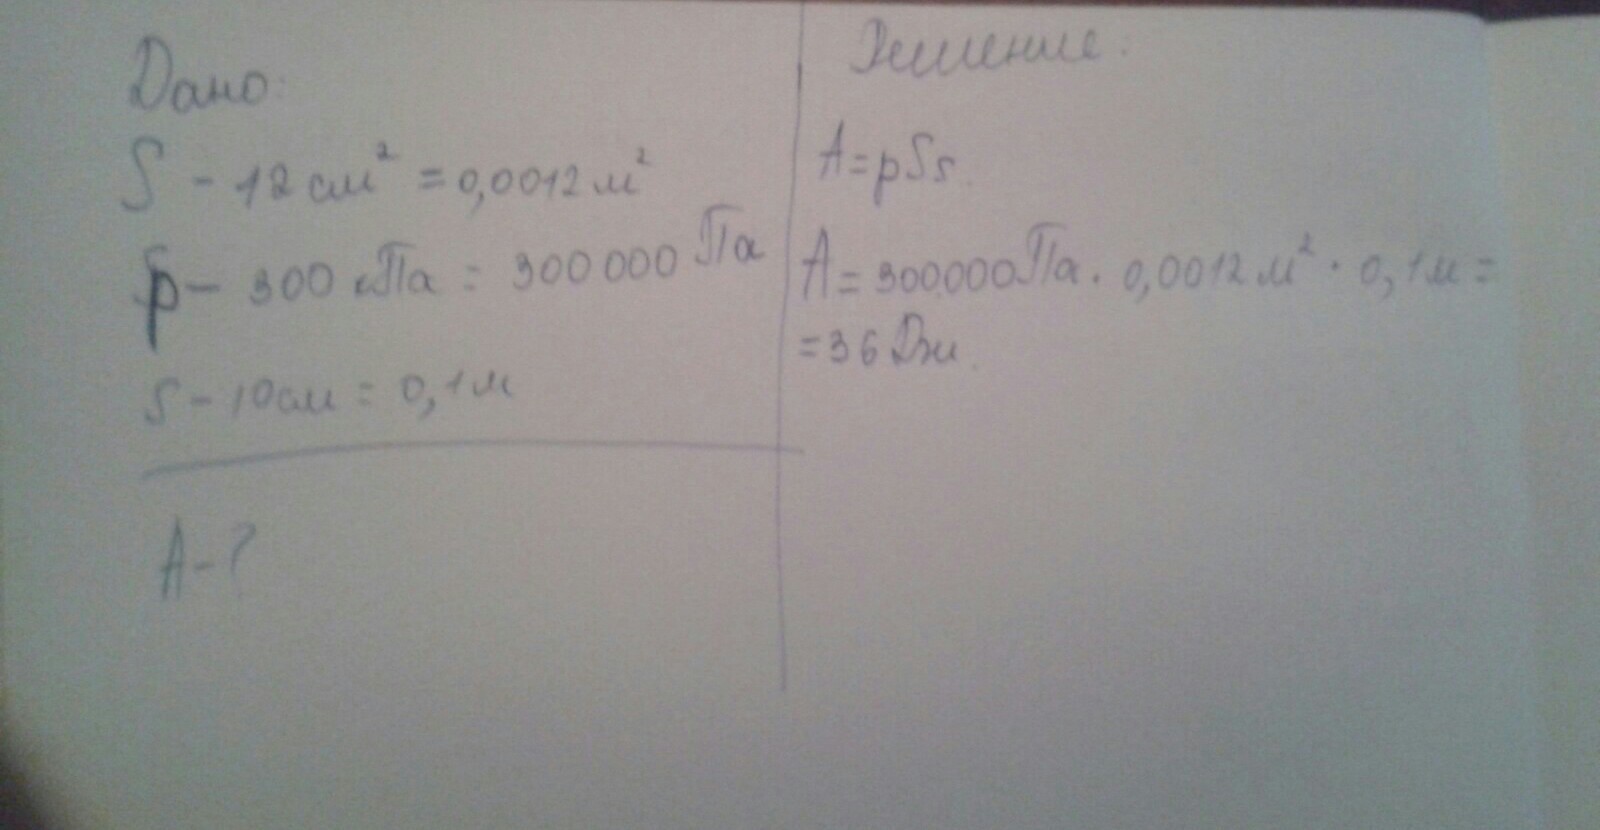 Дано:
S - 12 см² = 0,0012 м²
p - 300 кПа = 300 000 Па
s - 10 см = 0,1 м
A - ?
Решение:
A = pSs.
A = 300.000 Па · 0,0012 м² · 0,1 м =
= 36 Дж.